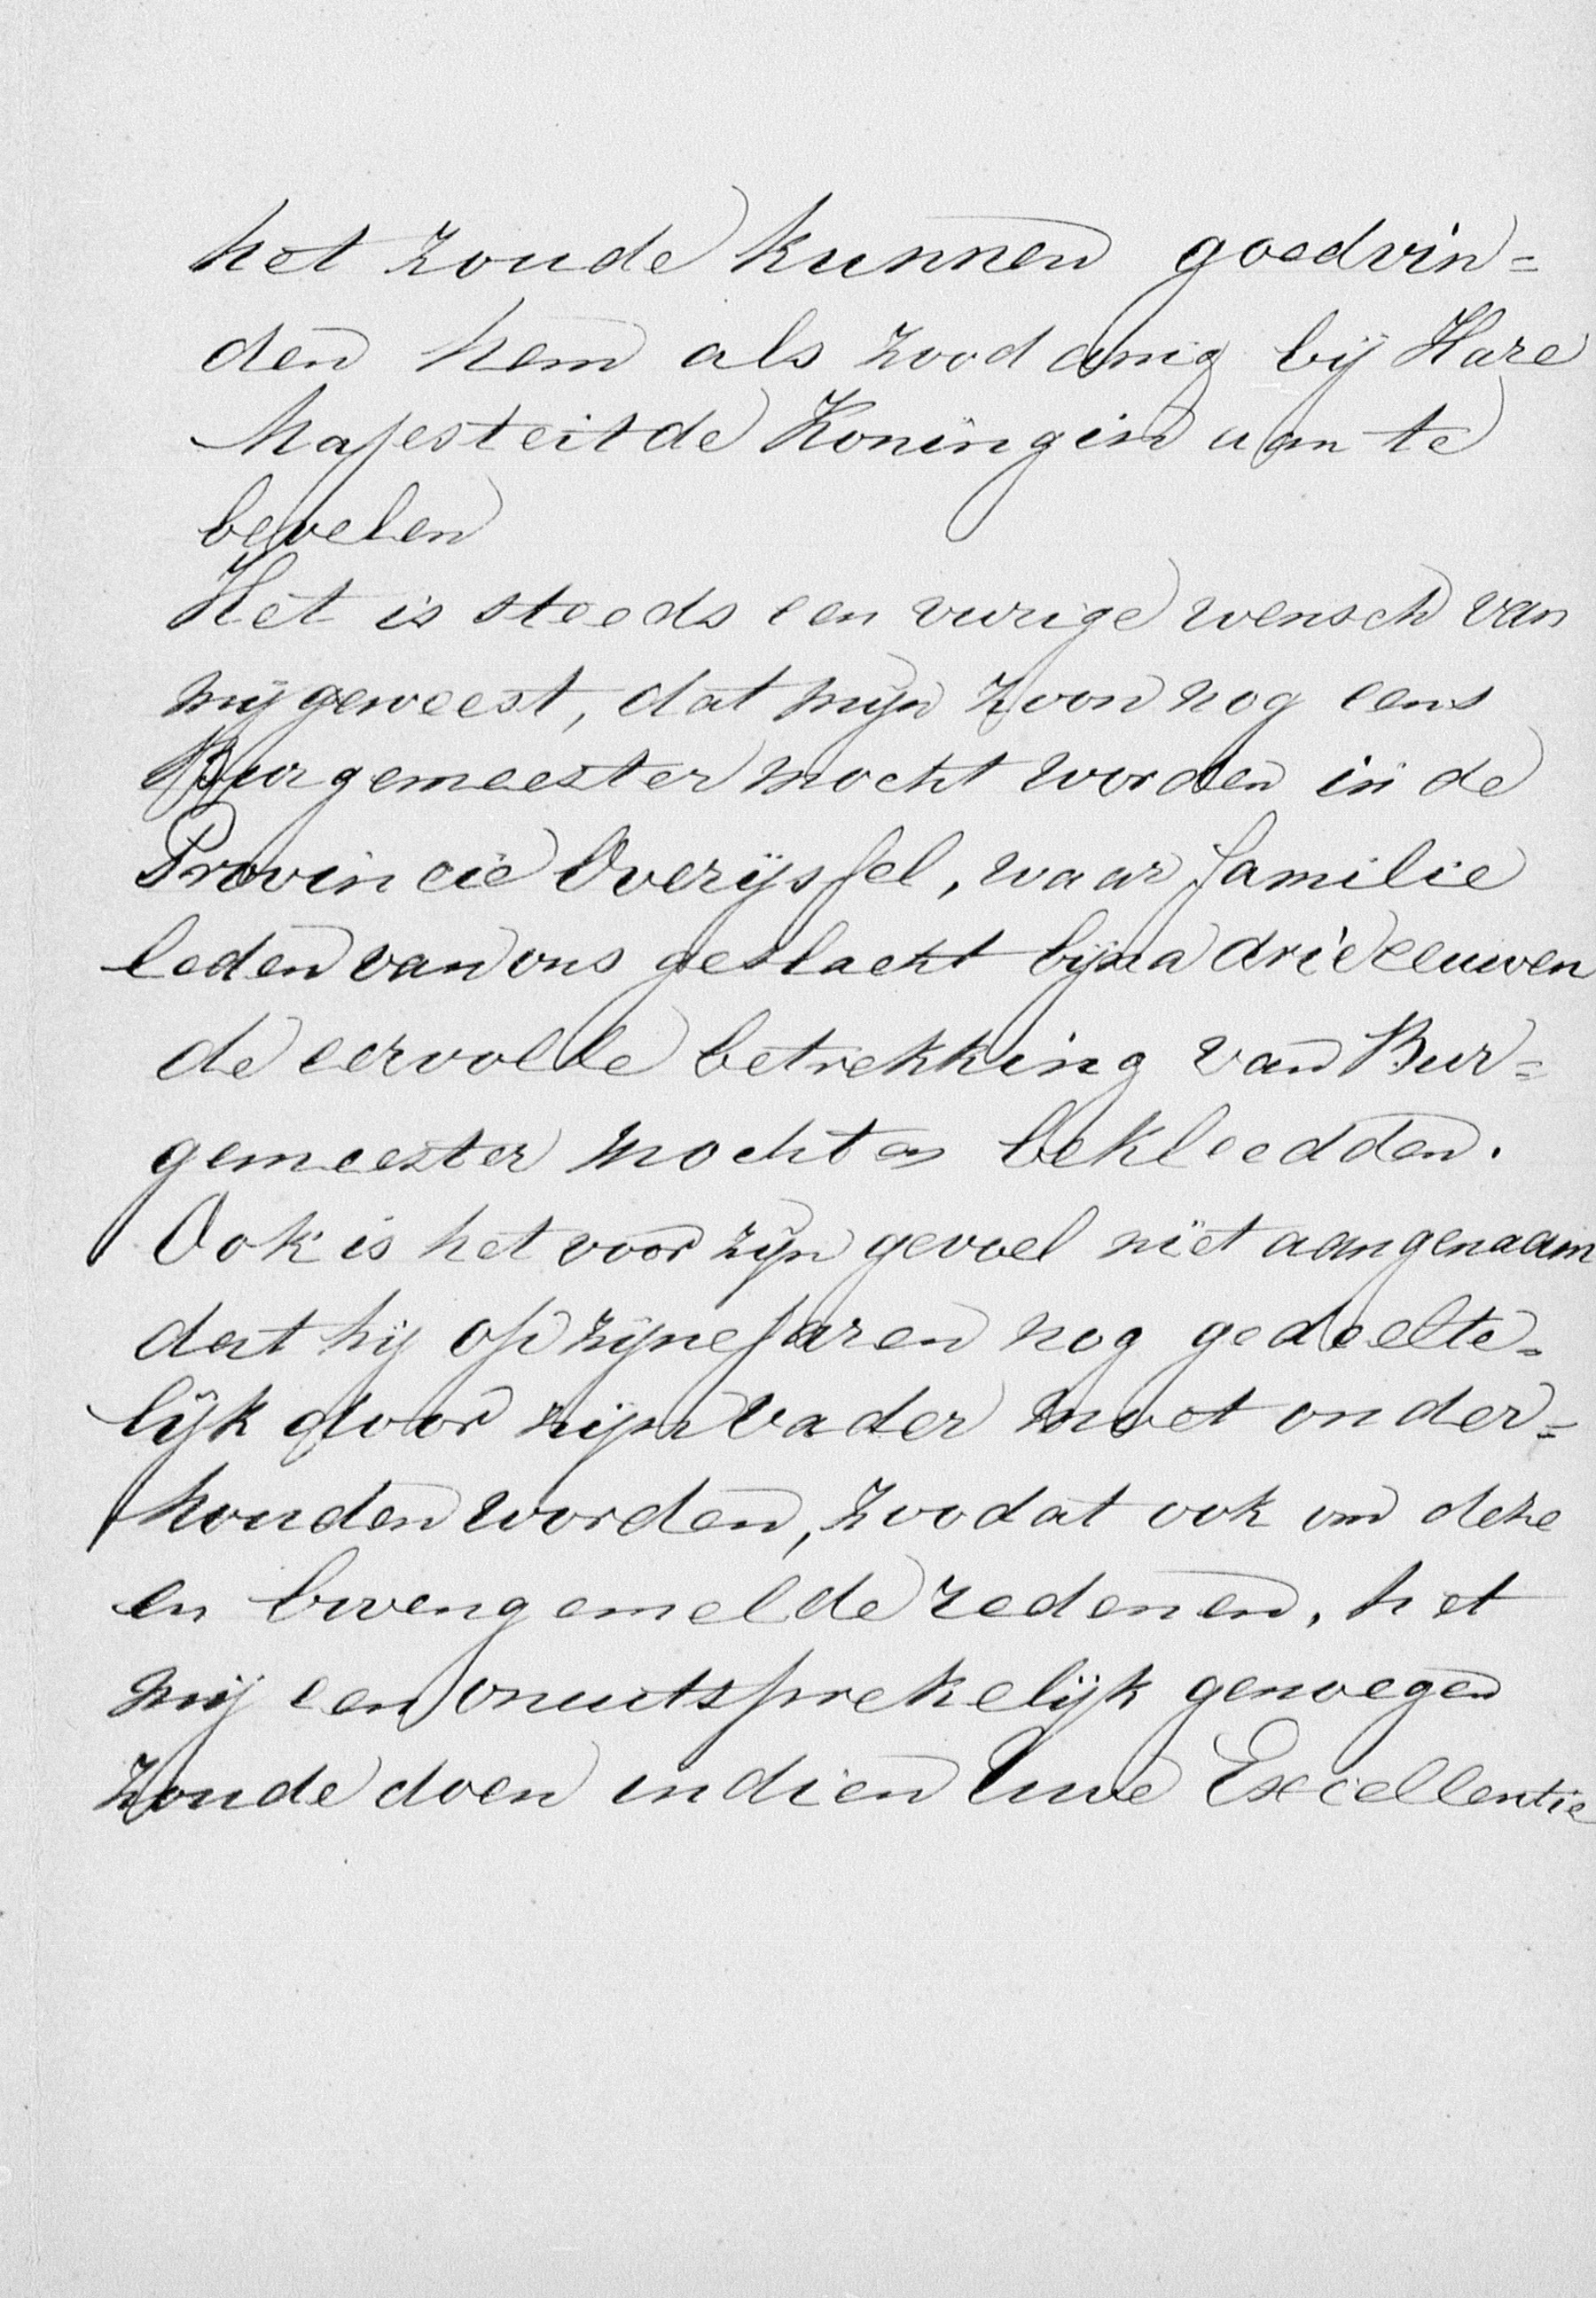 het zoude kunnen goedvin=
den hem als zoodanig bij Hare
Majesteit de Koningin aan te
bevelen
Het is steeds een vurige wensch van
mij geweest, dat mijn zoon nog eens
Burgemeester mocht worden in de
Provincie Overijssel, waar familie
leden van ons geslacht bijna drie eeuwen
de eervolle betrekking van Bur=
gemeester mochten bekleedden.
Ook is het voor zijn gevoel niet aangenaam
dat hij op zijne jaren nog gedeelte=
lijk door zijn vader moet onder=
houden worden, zoodat ook om deze
en bovengemelde redenen, het
mij een onuitsprekelijk genoegen
zoude doen indien Uwe Excellentie